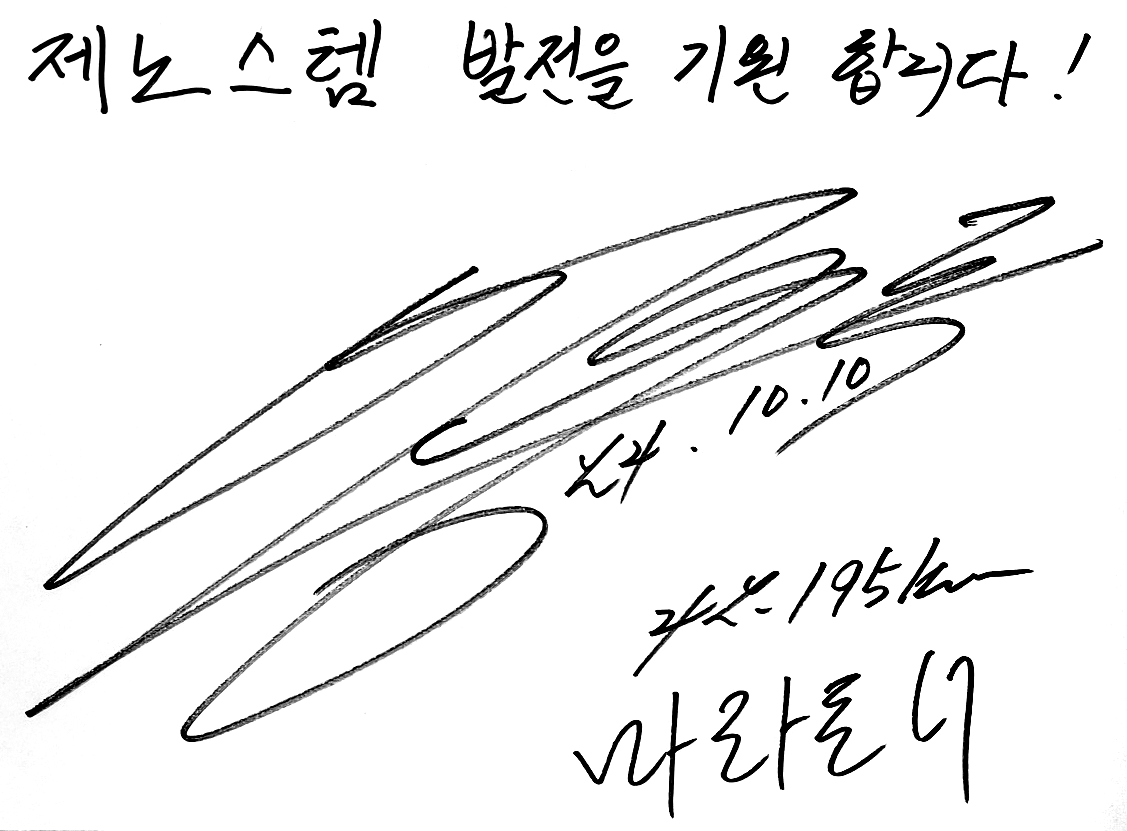 제노스템 발전을 기원 합니다!
24. 10.10
42.195km
마라토너